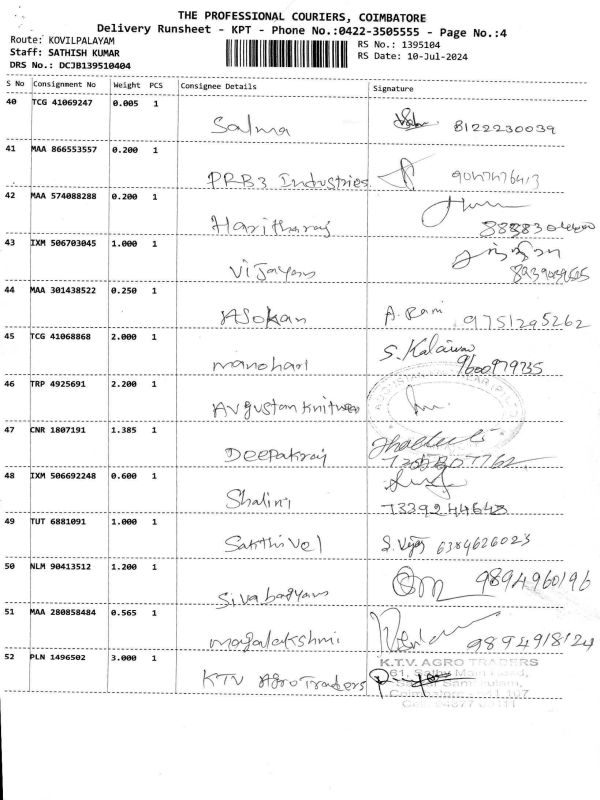 THE PROFESSIONAL COURIERS, COIMBATORE
Delivery Runsheet - KPT - Phone No.:0422-3505555 - Page No.:4
Route: KOVILPALAYAM
RS No.: 1395104
Staff: SATHISH KUMAR
RS Date: 10-Jul-2024
DRS No.: DCJB139510404
S No Consignment No Weight PCS Consignee Details Signature
40 TCG 41069247 0.005 1
Salma 8122230039
41 MAA 866553557 0.200 1
PRB3 Industries
42 MAA 574088288 0.200 1
Haritharaj
43 IXM 506703045 1.000 1
Vijayan
44 MAA 301438522 0.250 1
Asokan A. Rani 9751295262
45 TCG 41068868 2.000 1
manohari 9600979735
46 TRP 4925691 2.200 1
Avgustan knitwear
47 CNR 1807191 1.385 1
Deepakraj
48 IXM 506692248 0.600 1
Shalini 7339244643
49 TUT 6881091 1.000 1
Sakthivel 6384626023
50 NLM 90413512 1.200 1
Sivabagyam 9894960196
51 MAA 280858484 0.565 1
magalakshmi 9894918124
52 PLN 1496502 3.000 1
KTV Agro Traders
K.T.V. AGRO TRADERS